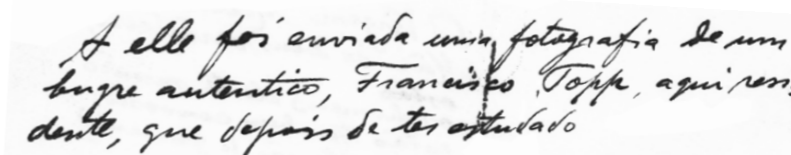 A elle foi enviada uma fotografia de um
bugre autentico, Francisco Topp, aqui resi
dente, que depois de ter estudado